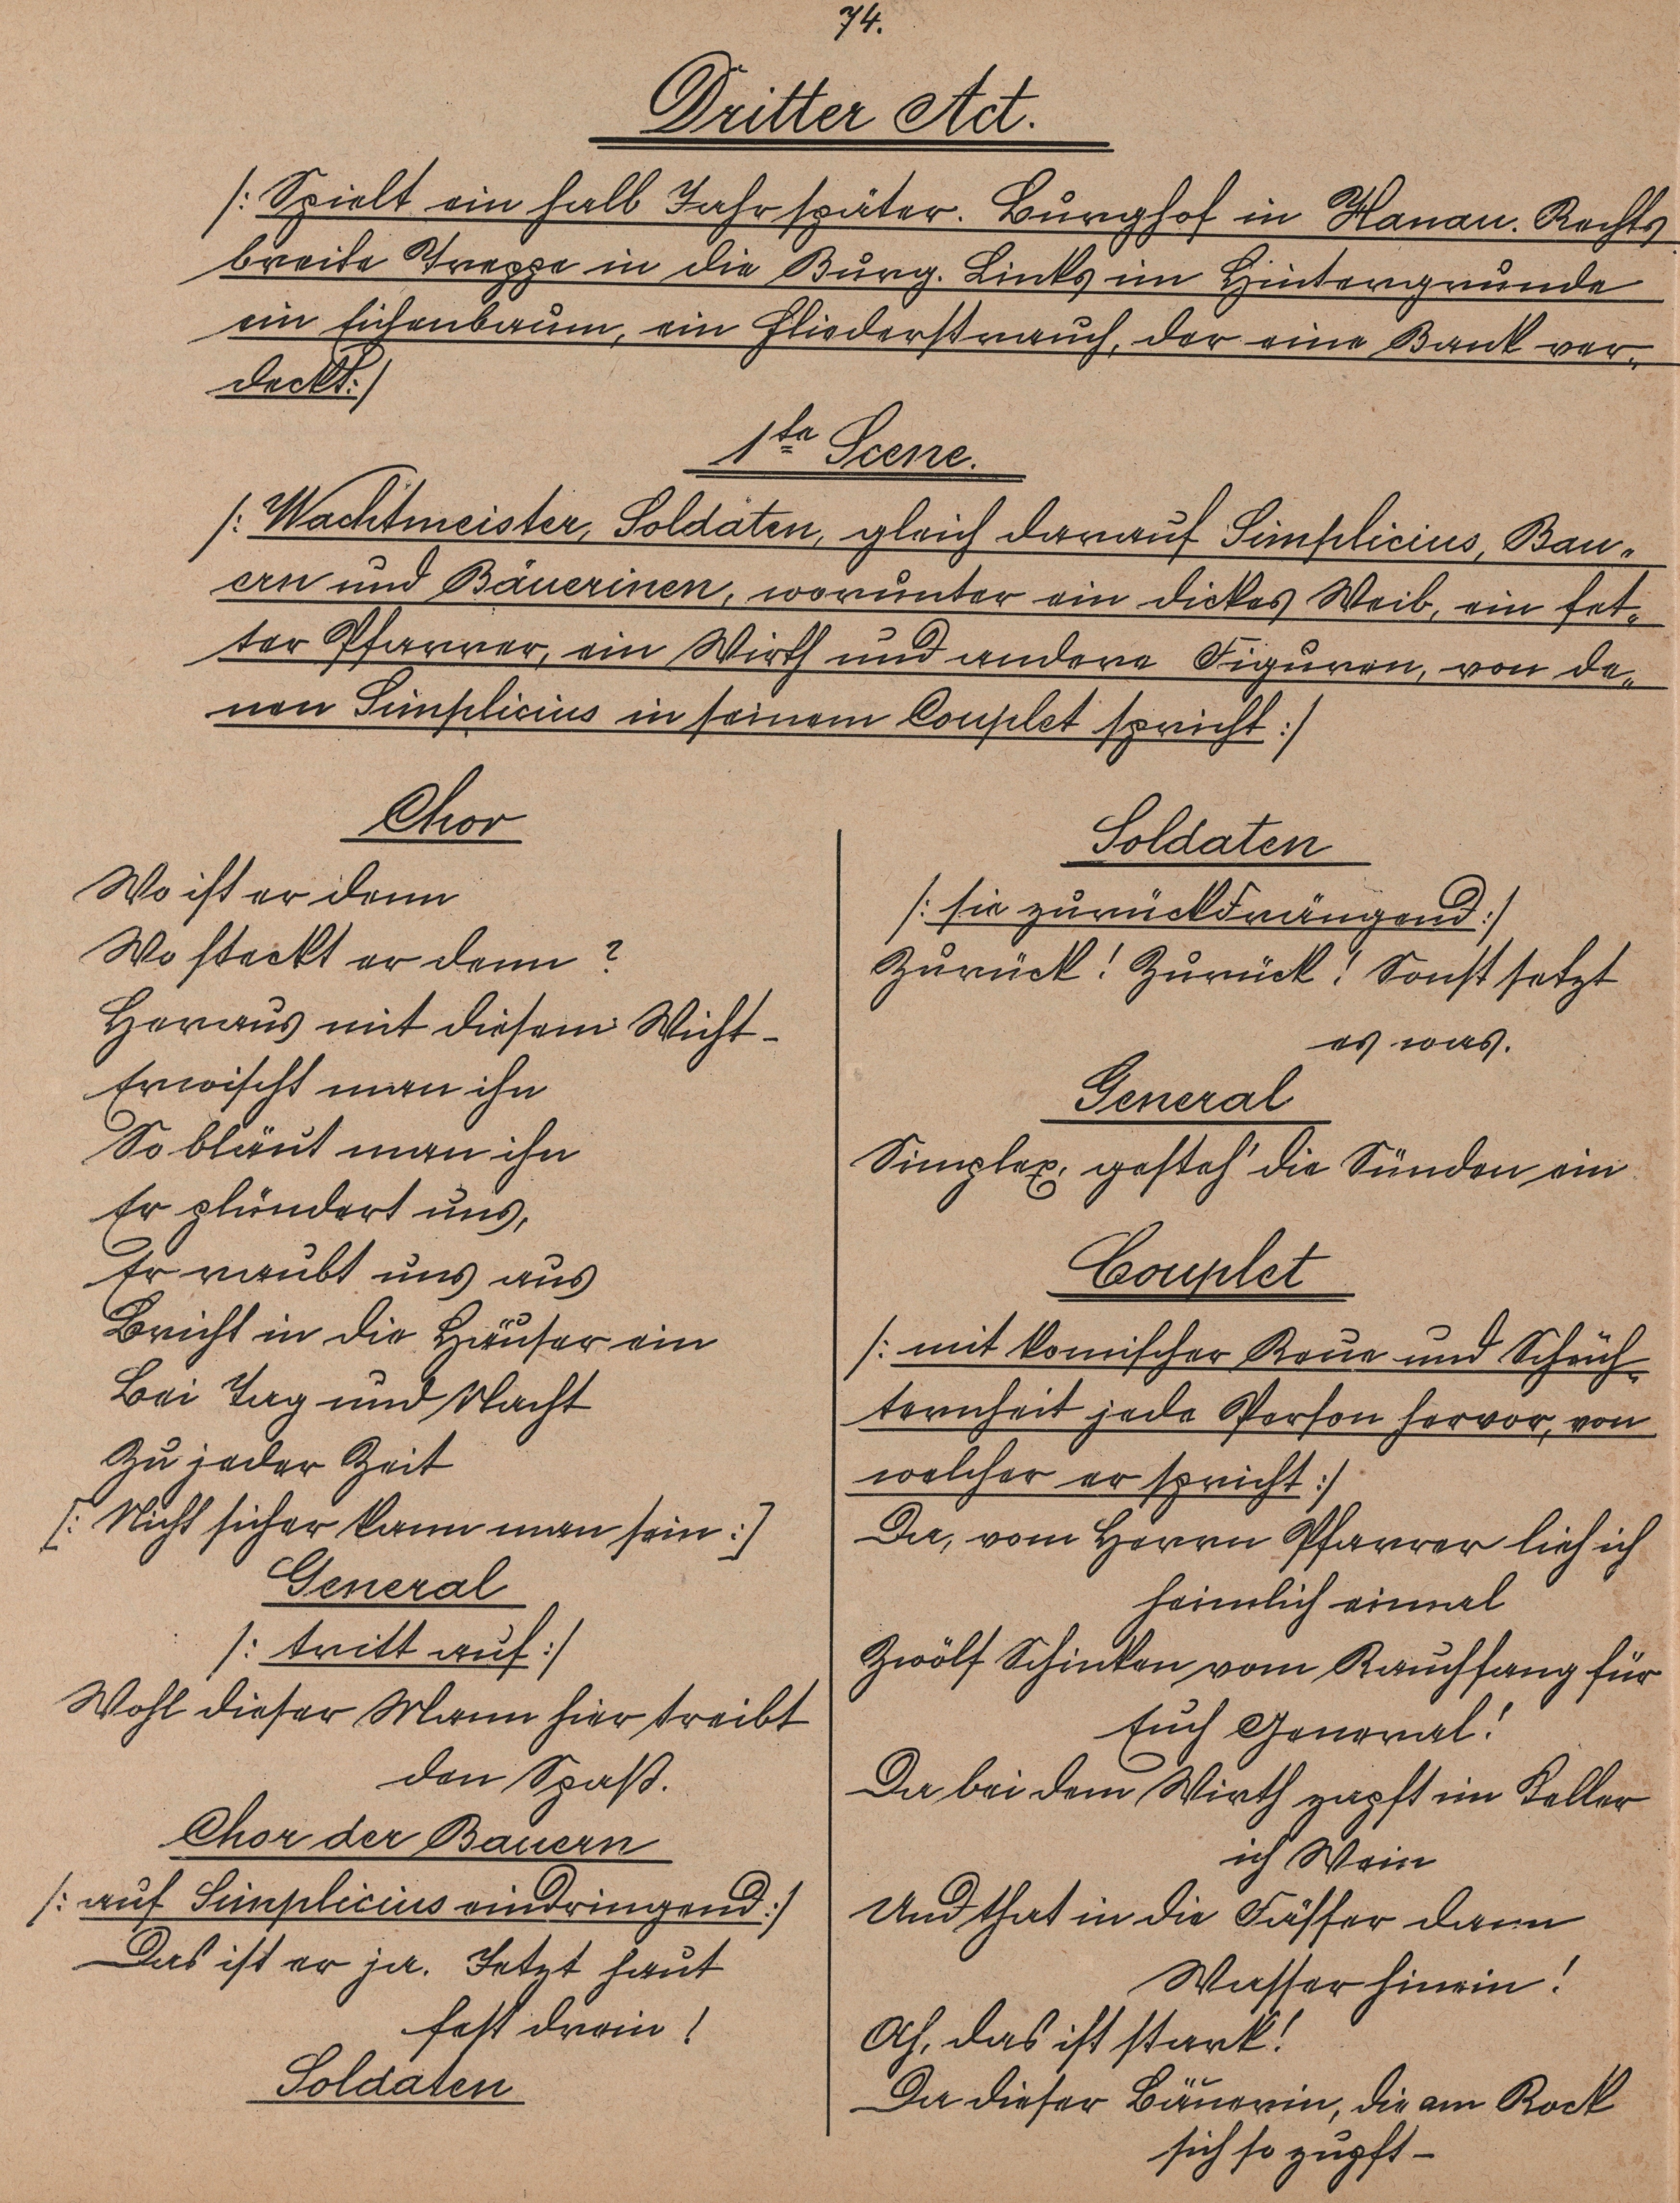 74.
Dritter Act.
/: Spielt ein halb Jahr später. Burghof in Hanau. Rechts
breite Treppe in die Burg. Links im Hintergrunde
ein Eichenbaum, ein Fliederstrauch, der eine Bank ver-
deckt :/
1te Scene.
/: Wachtmeister, Soldaten, gleich darauf Simplicius, Bau-
ern und Bäuerinen, worunter ein dickes Weib, ein fet-
ter Pfarrer, ein Wirth und andere Figuren, von de-
nen Simplicius in seinem Couplet spricht :/
Chor
Wo ist er denn
Wo steckt er denn?
Heraus mit diesem Wicht -
Erwischt man ihn
So bläut man ihn
Er plündert uns,
Er raubt uns aus
Bricht in die Häuser ein
Bei Tag und Nacht
Zu jeder Zeit
[: Nicht sicher kann man sein :]
General
/: tritt auf :/
Wohl dieser Mann hier treibt
den Spaß.
Chor der Bauern
/: auf Simplicius eindringend :/
Das ist er ja. Jetzt haut
fest drein!
Soldaten
Soldaten
/: sie zurückdrängend :/
Zurück! Zurück! Sonst setzt
es was.
General
Simplex, gesteh' die Sünden ein
Couplet
/: mit komischer Reue und Schüch-
ternheit jede Person hervor, von
welcher er spricht :/
Da, vom Herrn Pfarrer lieh ich
heimlich einmal
Zwölf Schinken vom Rauchfang für
Euch General!
Da bei dem Wirth zapft im Keller
ich Wein
Und that in die Fässer dann
Wasser hinein!
Ah, das ist stark!
Da dieser Bäuerin, die am Rock
sich so zupft -